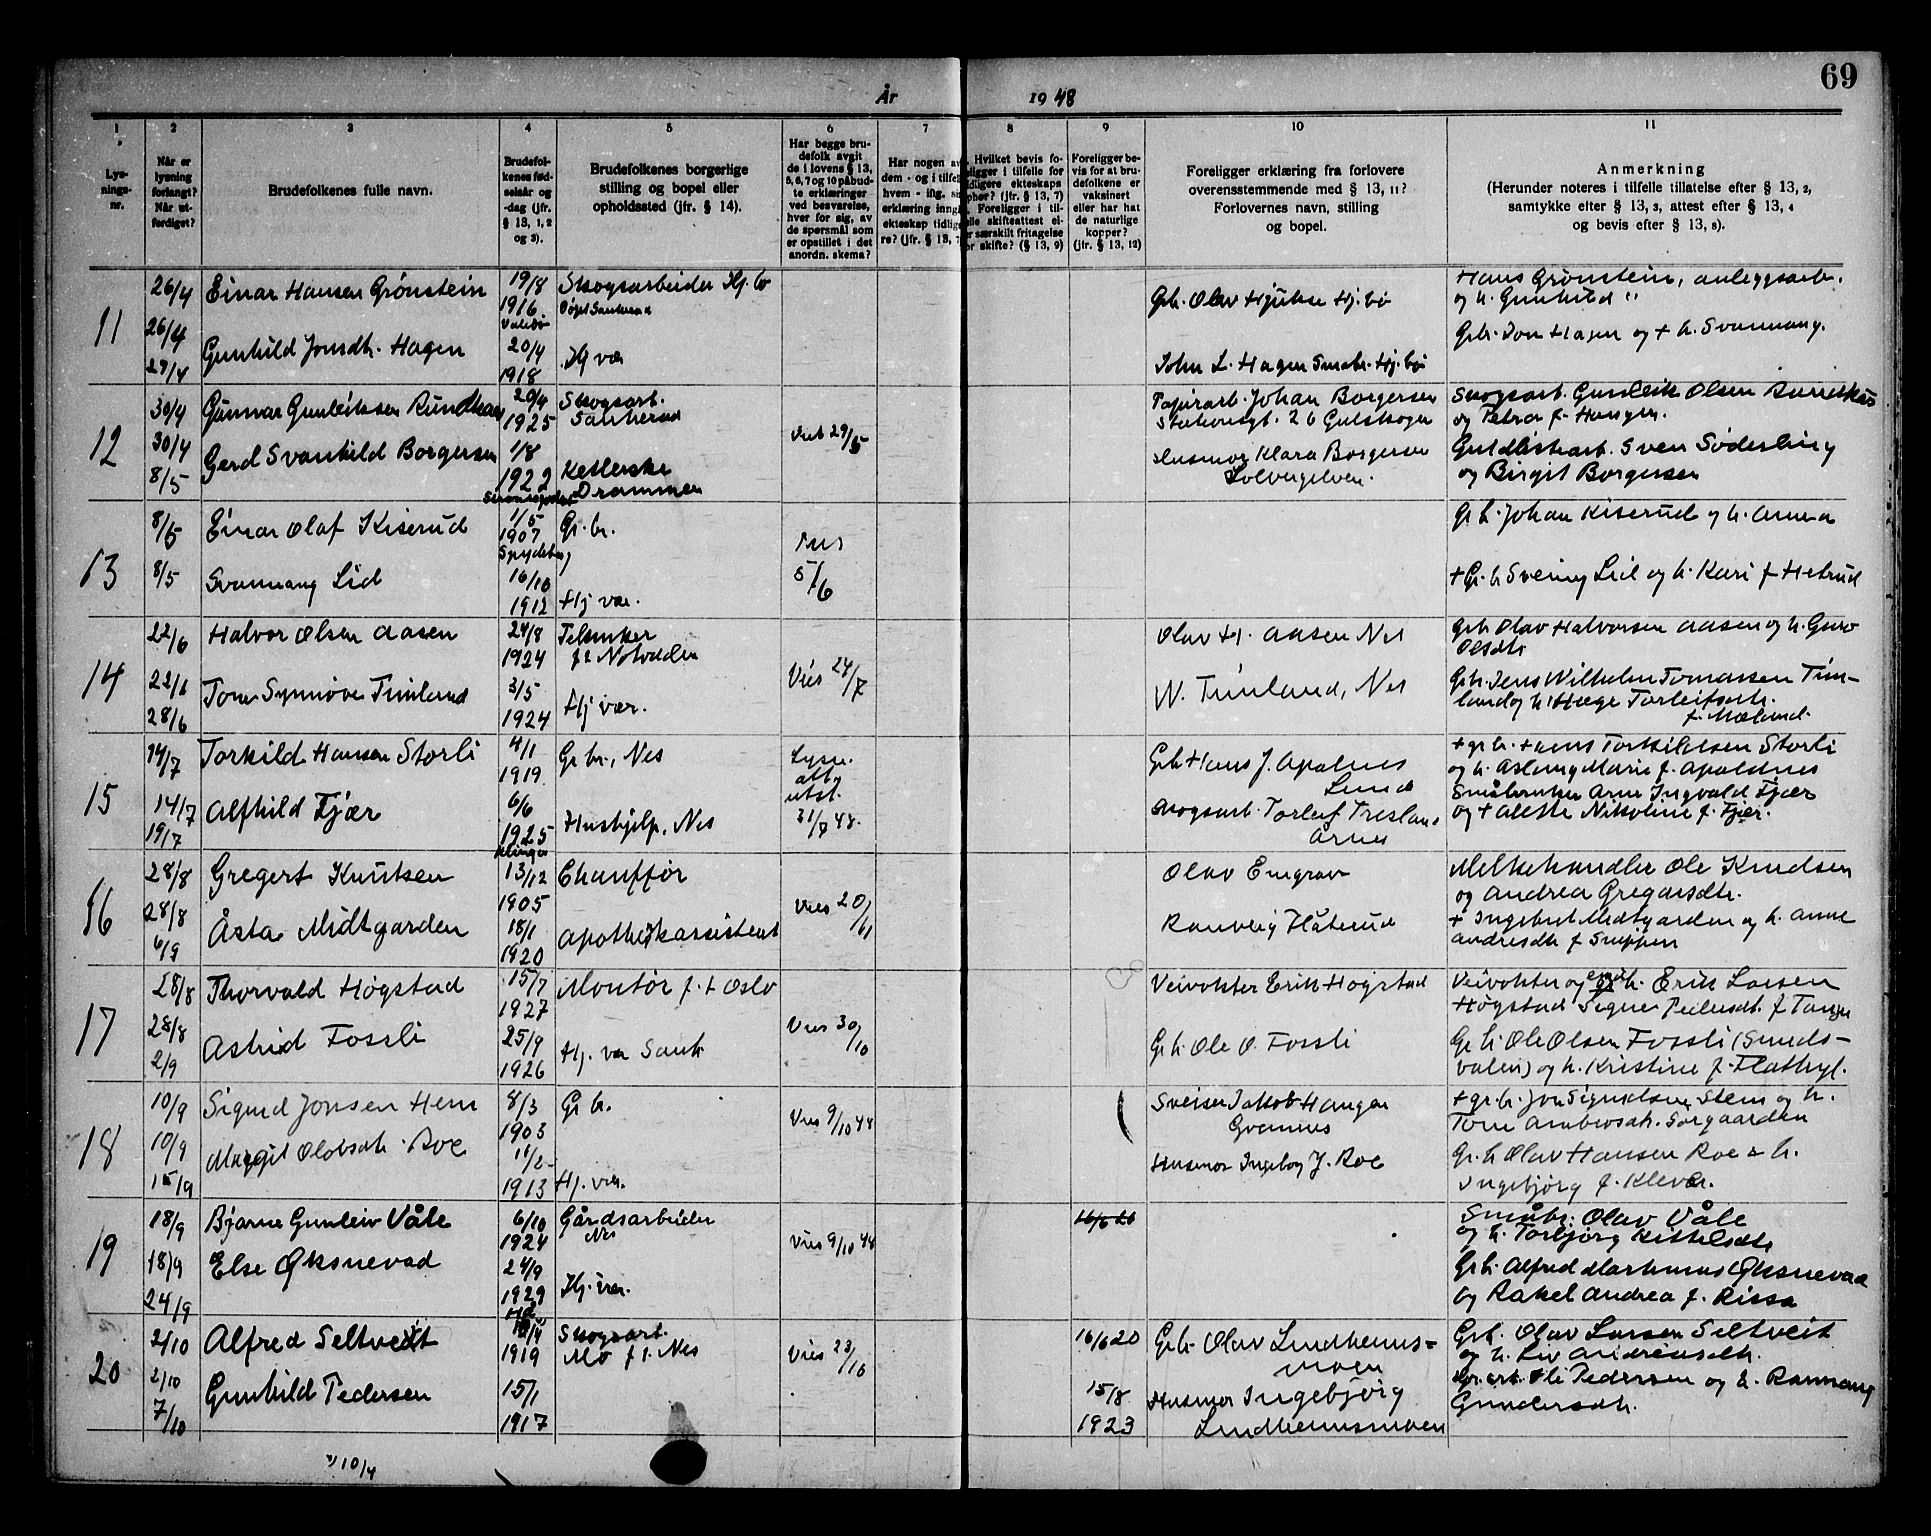 69
År 1948
1 2 3 4 5 6 7 8 9 10 11
Lysningsnr.
Når er lysning forlangt? Når utferdiget?
Brudefolkenes fulle navn.
Brudefolkenes fødselsår og -dag (jfr. § 13, 1, 2 og 3).
Brudefolkenes borgerlige stilling og bopel eller opholdssted (jfr. § 14).
Har begge brudefolk avgit de i lovens § 13, 5, 6, 7 og 10 påbudte erklæringer ved besvarelse, hver for sig, av de spørsmål som er opstillet i det anordn. skema?
Har nogen av dem - og i tilfelle hvem - iflg.
erklæring inngå
ekteskap tidlige
re? (jfr. § 13, 7
Hvilket bevis fo-
ligger i tilfelle for
dligere ekteskaps
pher? (jfr. § 13, 7)
Foreligger i til-
elle skifteattest el-
r særskilt fritagelse
or skifte? (§ 13, 9)
Foreligger bevis for at brudefolkene er vaksinert eller har hat de naturlige kopper? (jfr. § 13, 12)
Foreligger erklæring fra forlovere overensstemmende med § 13, 11? Forlovernes navn, stilling og bopel.
Anmerkning
(Herunder noteres i tilfelle tillatelse efter § 13, 2, samtykke efter § 13, 3, attest efter § 13, 4 og bevis efter § 13, 8).
11 26/4 Einar Hansen Grønstein 19/8 1916. Skogsarbeider Hj. bø
Grb. Olav Hjukse Hj. bø
Hans Grønstein, anleggsarb. og h. Gunhild "
26/4 27/4 Gunhild Jonsdh. Hagen 20/4 1918 Hj vær
John L. Hagen Småbr. Hj. bø
Grb. Jon Hagen og + h. Svannaug.
12 30/4 Gunnar Gunleiksen 20/4 1925 Skogsarb. Sauherad
Vied 29/5
Papirarb. Johan Borgersen Stationsgt. 26 Gulskogen
Skogsarb. Gunleik Olsen
og Petra f. Haugen.
30/4 8/5 Gerd Svanhild Borgersen 1/8 1922 Drammen
Husmor Klara Borgersen Solbergelven.
Guldlistearb. Sven Søderling og Birgit Borgersen
13 8/5 Einar Olaf Kiserud 1/5 1907 Spydeberg Gr. br.
5/6
Gr b. Johan Kiserud og h. Anna
8/5 Svannaug Lid 16/10 1912 Hj vær.
+ Gr. b Sveinung Lid og h. Kari f Hetrud
14 22/6 Halvor Olsen Aasen 24/8 1924 Notodden
Vies 24/7
Olav H. Aasen Nes
Grb Olav Halvorsen Aasen og h. Guro Olsdh
28/6 Tone Synnøve Timland 3/5 1924 Hj vær.
W. Timland, Nes
Grb. Jens Wilhelm Tomassen Timland og h. Hæge Torleifsdh. f. Mæland.
15 14/7 Torkild Hansen Storli 4/1 1919. Gr br., Nes
Lysn. att. utst. 31/7 48.
Grb Hans J. Apalnes Lunde
+ gr. b. Hans Torkildsen Storli og h. Aslaug Marie f. Apaldnes
14/7 19/7 Alfhild Fjær 6/6 1925 Hushjelp, Nes
Skogsarb. Torleif Treslan
Årnes
Småbruker Arne Ingvald Fjær og + Alette Nikoline f. Fjær.
16 28/8 Gregert Knutsen 13/12 1905 Chauffør
Vies 20/11
Olav Enggrav
Melkehandler Ole Knudsen og Andrea Gregarsdh.
28/8 4/9 Åsta Midtgarden 18/1 1920 Apothekassistent
Ranveig Håterud
+ Ingebret Midtgarden og h. Anne Andresdh f Snippen
17 28/8 Thorvald Høgstad 15/7 1927 Montør f. + Oslo
Vies 30/10
Veivokter Erik Høgstad
Veivokter og h. Erik Larsen Høgstad Signe Pedersdh. f Tangen
28/8 2/9 Astrid Fossli 25/9 1926 Hj. vær Sauh
Gr b. Ole O. Fossli
Gr b. Ole Olsen Fossli (Sundsvalen) og h. Kristine f. Flathyl.
18 10/9 Sigurd Jonsen Hem 8/3 1903 Gr b.
Vies 9/10 48
Sveiser Jakob Haugen
+ gr. b. Jon Sigurdsen Stem og h. Tone Ambrosdh. Sørgaarden
10/9 15/9 Margit Olavsdh. Roe 11/2 1913 Hj. vær.
Husmor Ingeborg J. Roe
Gr. b Olav Hansen Roe & h. Ingebjørg f. Kleva.
19 18/9 Bjarne Gunleiv Våle 6/10 1924 Gårdsarbeider Nes
Vies 9/10 48
16/6 20
Småbr. Olav Våle og h. Torbjørg Kittelsdh
18/9 24/9 Else Øksnevad 24/9 1929 Hj. vær.
Gr b. Alfred Markmus Øksnevad og Rakel Andrea f. Rissa
20 2/10 Alfred Seltveit 1919 Skogsarb. Mo f. i. Nes
Vies 23/10
16/6 20
Grb. Olav Lindheimsmoen
Grb. Olav Larsen Seltveit og h. Liv Andreasdh.
2/10 7/10 Gunhild Pedersen 15/1 1917
15/8 1923
Husmor Ingebjørg Lindheimsmoen
Oli Pedersen og h. Rannaug Gundersdh.
10/4